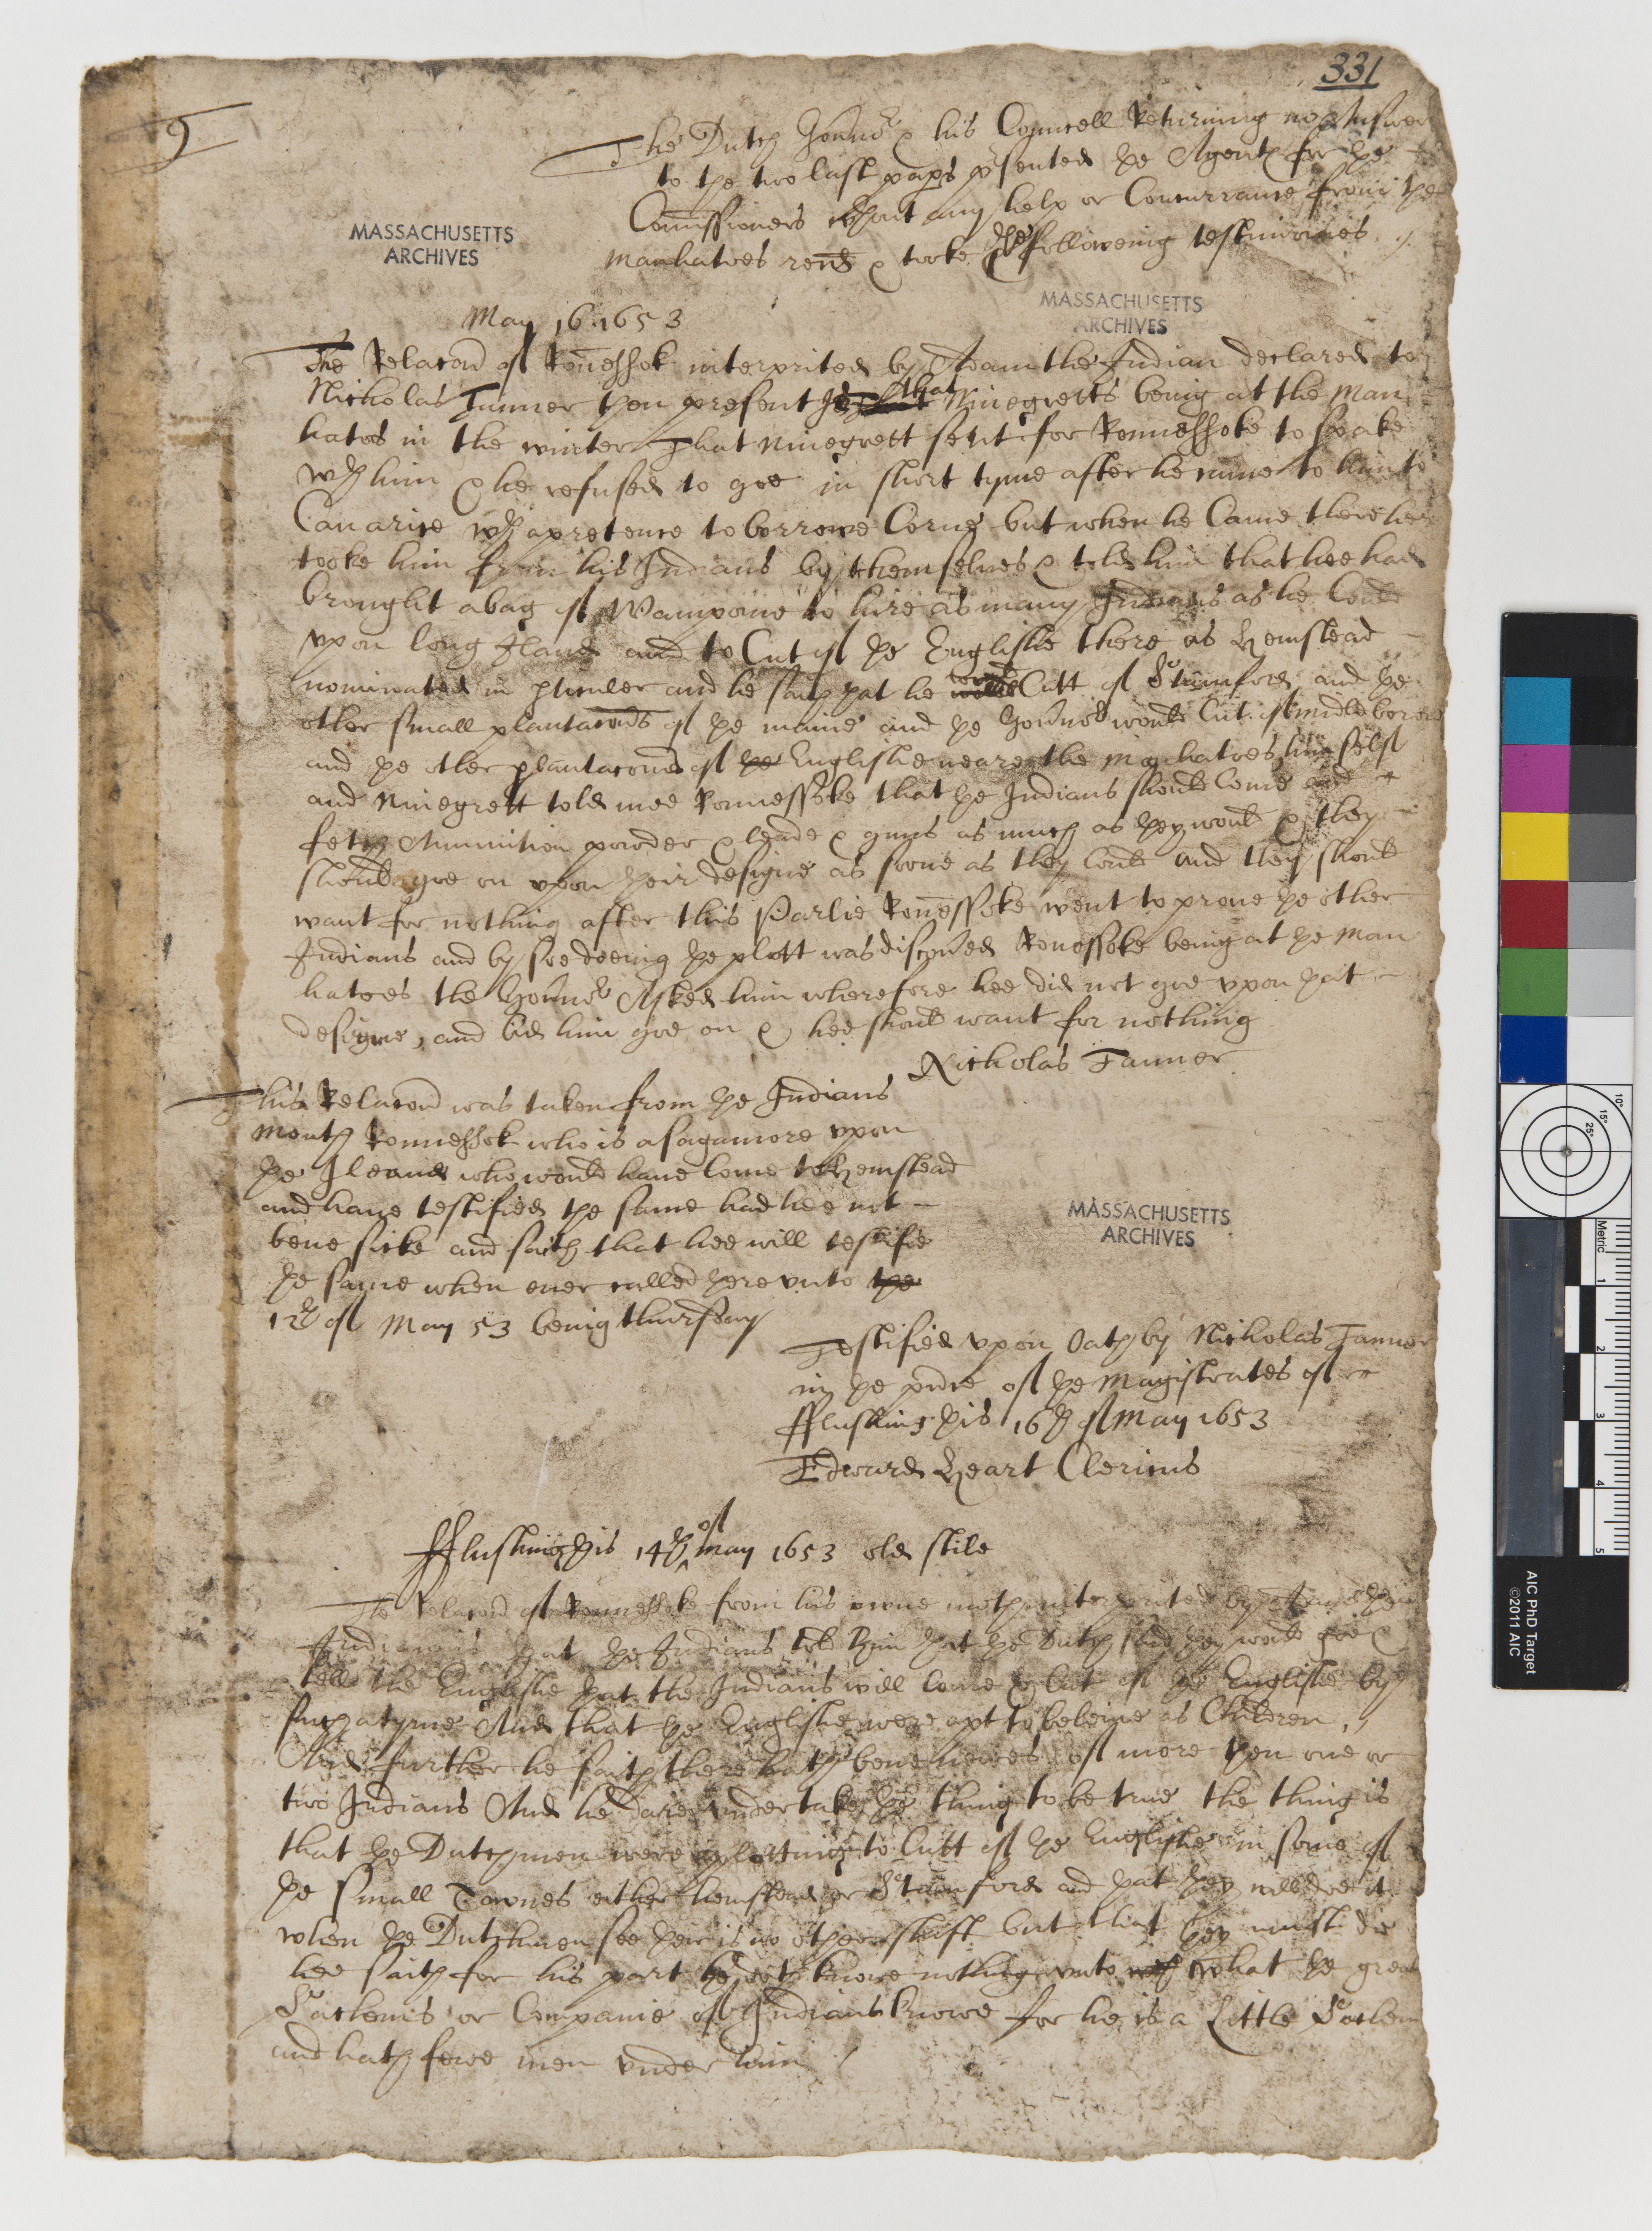 331
9
The Dutch Gouernor & his Councell Returning no Answer
to þe two last papers presented þe Agents for þe
Comissioners wthout any help or Concurrance from þe
Manhatoes rend & tooke þese followeing testimonies
MASSACHUSETTS
ARCHIVES
MASSACHUSETTS
ARCHIVES
May 16 1653
The Relacon of Ronessok interprited by Adam the Indian declared to
Nicholas Tanner then present that Ninegretts being at the Man
hatos in the winter That Ninegrett sent for Ronnessoke to speake
wth him & he refused to goe in short tyme after he came to him to
Canarise wth a pretence to borrowe Corne but when he Came there hee
tooke him from his Indians by themselues & told him that hee had
brought a bag of Wampome to hire as many Indians as he Could
vpon long Iland and to Cut of þe Englishe there as Hemstead
nominated in pticuler and he saith þat he would Cutt of Stamford and þe
other small plantacons of þe maine and þe Gouernor would Cut of midleborow
and þe other plantacons of þe Englishe neare the Manhatoes him self
and Ninegrett told mee Ronnessoke that þe Indians should Come and
fetch Ammunition powder & leade & guns as much as þey would & they
should goe on vpon þeir designe as soone as they Could and they should
want for nothing after this Parlie Ronessoke went to proue þe other
Indians and by soe doeing þe plott was discouered Ronessoke being at þe Man
hatoes the Gouernor Asked him wherefore hee did not goe vpon þat
designe, and bid him goe on & hee should want for nothing
Nicholas Tanner
This Relacon was taken from þe Indians
Mouth Ronnessok who is a sagamore vpon
þe Ileand who would haue Come to Hemstead
and haue testified the same had hee not
bene sicke and saith that hee will testifie
þe same when euer called here vnto the
12th of May 53 being thursday
MASSACHUSETTS
ARCHIVES
Testified vpon Oath by Nicholas Tanner
in þe pnce of þe Magistrates of
fflushing þis 16th of May 1653
Edward Heart Clericus
fflushing þis 14th of May 1653 old stile
The Relacon of Ronnessoke from his owne moth interprited by Adam þe
Indian is þat þe Indians told him þat þe Dutch said þey would goe &
tell the Englishe þat the Indians will Come & Cut of þe Englishe by
such a tyme And that þe Englishe were apt to beleiue as Children,
And further he saith there hath bene newes of more then one or
two Indians And he dare vndertake þe thing to be true the thing is
that þe Dutchmen were a plotting to Cutt of þe Englishe in some of
þe small Townes either hemstead or Stamford and þat þey will doe it
when þe Dutchmen see þeir is no other shift but that þey must die
hee saith for his part he doth knowe nothing vnto what þe great
Sachems or Companie of Indians knowe for he is a Little Sachem
and hath fewe men vnder him
10°
15°
25°
Metric
1
2
3
4
5
AIC PhD Target
©2011 AIC